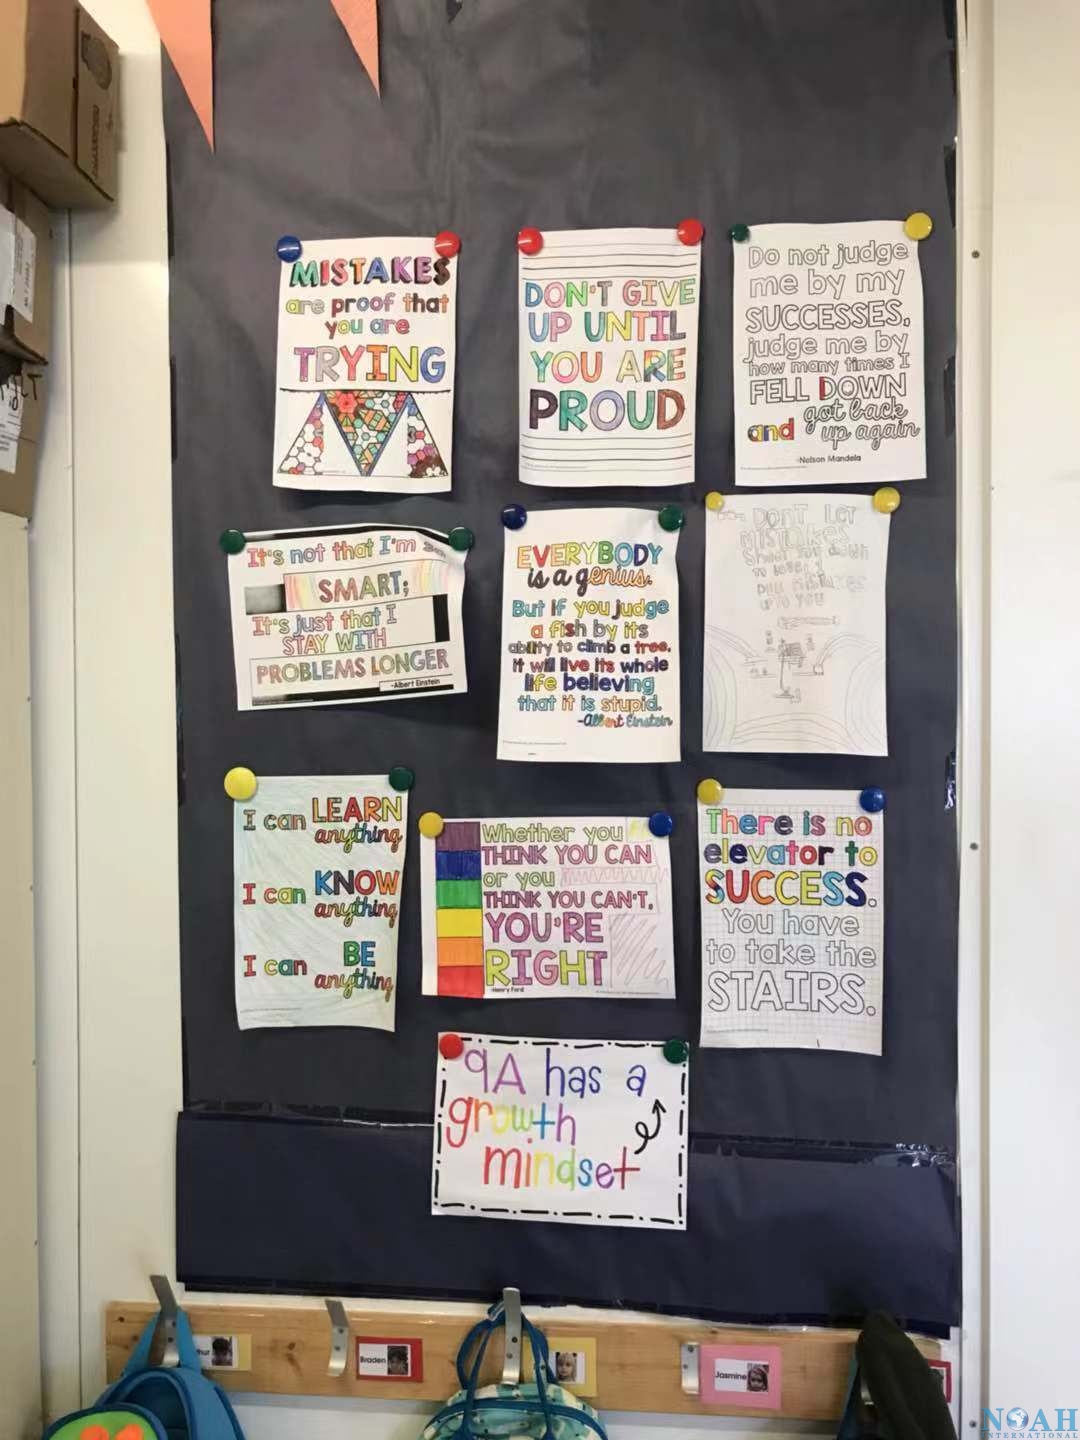 MISTAKES
are proof that
you are
TRYING
DON'T GIVE
UP UNTIL
YOU ARE
PROUD
Do not judge
me by my
SUCCESSES,
judge me by
how many times I
FELL DOWN
and got back
up again
-Nelson Mandela
It's not that I'm so
SMART;
It's just that I
STAY WITH
PROBLEMS LONGER
-Albert Einstein
EVERYBODY
is a genius.
But if you judge
a fish by its
ability to climb a tree,
it will live its whole
life believing
that it is stupid.
-Albert Einstein
DONT LET
MISTAKES
I can LEARN
anything
I can KNOW
anything
I can BE
anything
Whether you
THINK YOU CAN
or you
THINK YOU CAN'T,
YOU'RE
RIGHT
-Henry Ford
There is no
elevator to
SUCCESS.
You have
to take the
STAIRS.
9A has a
growth
mindset
Braden
Jasmine
NOAH
INTERNATIONAL